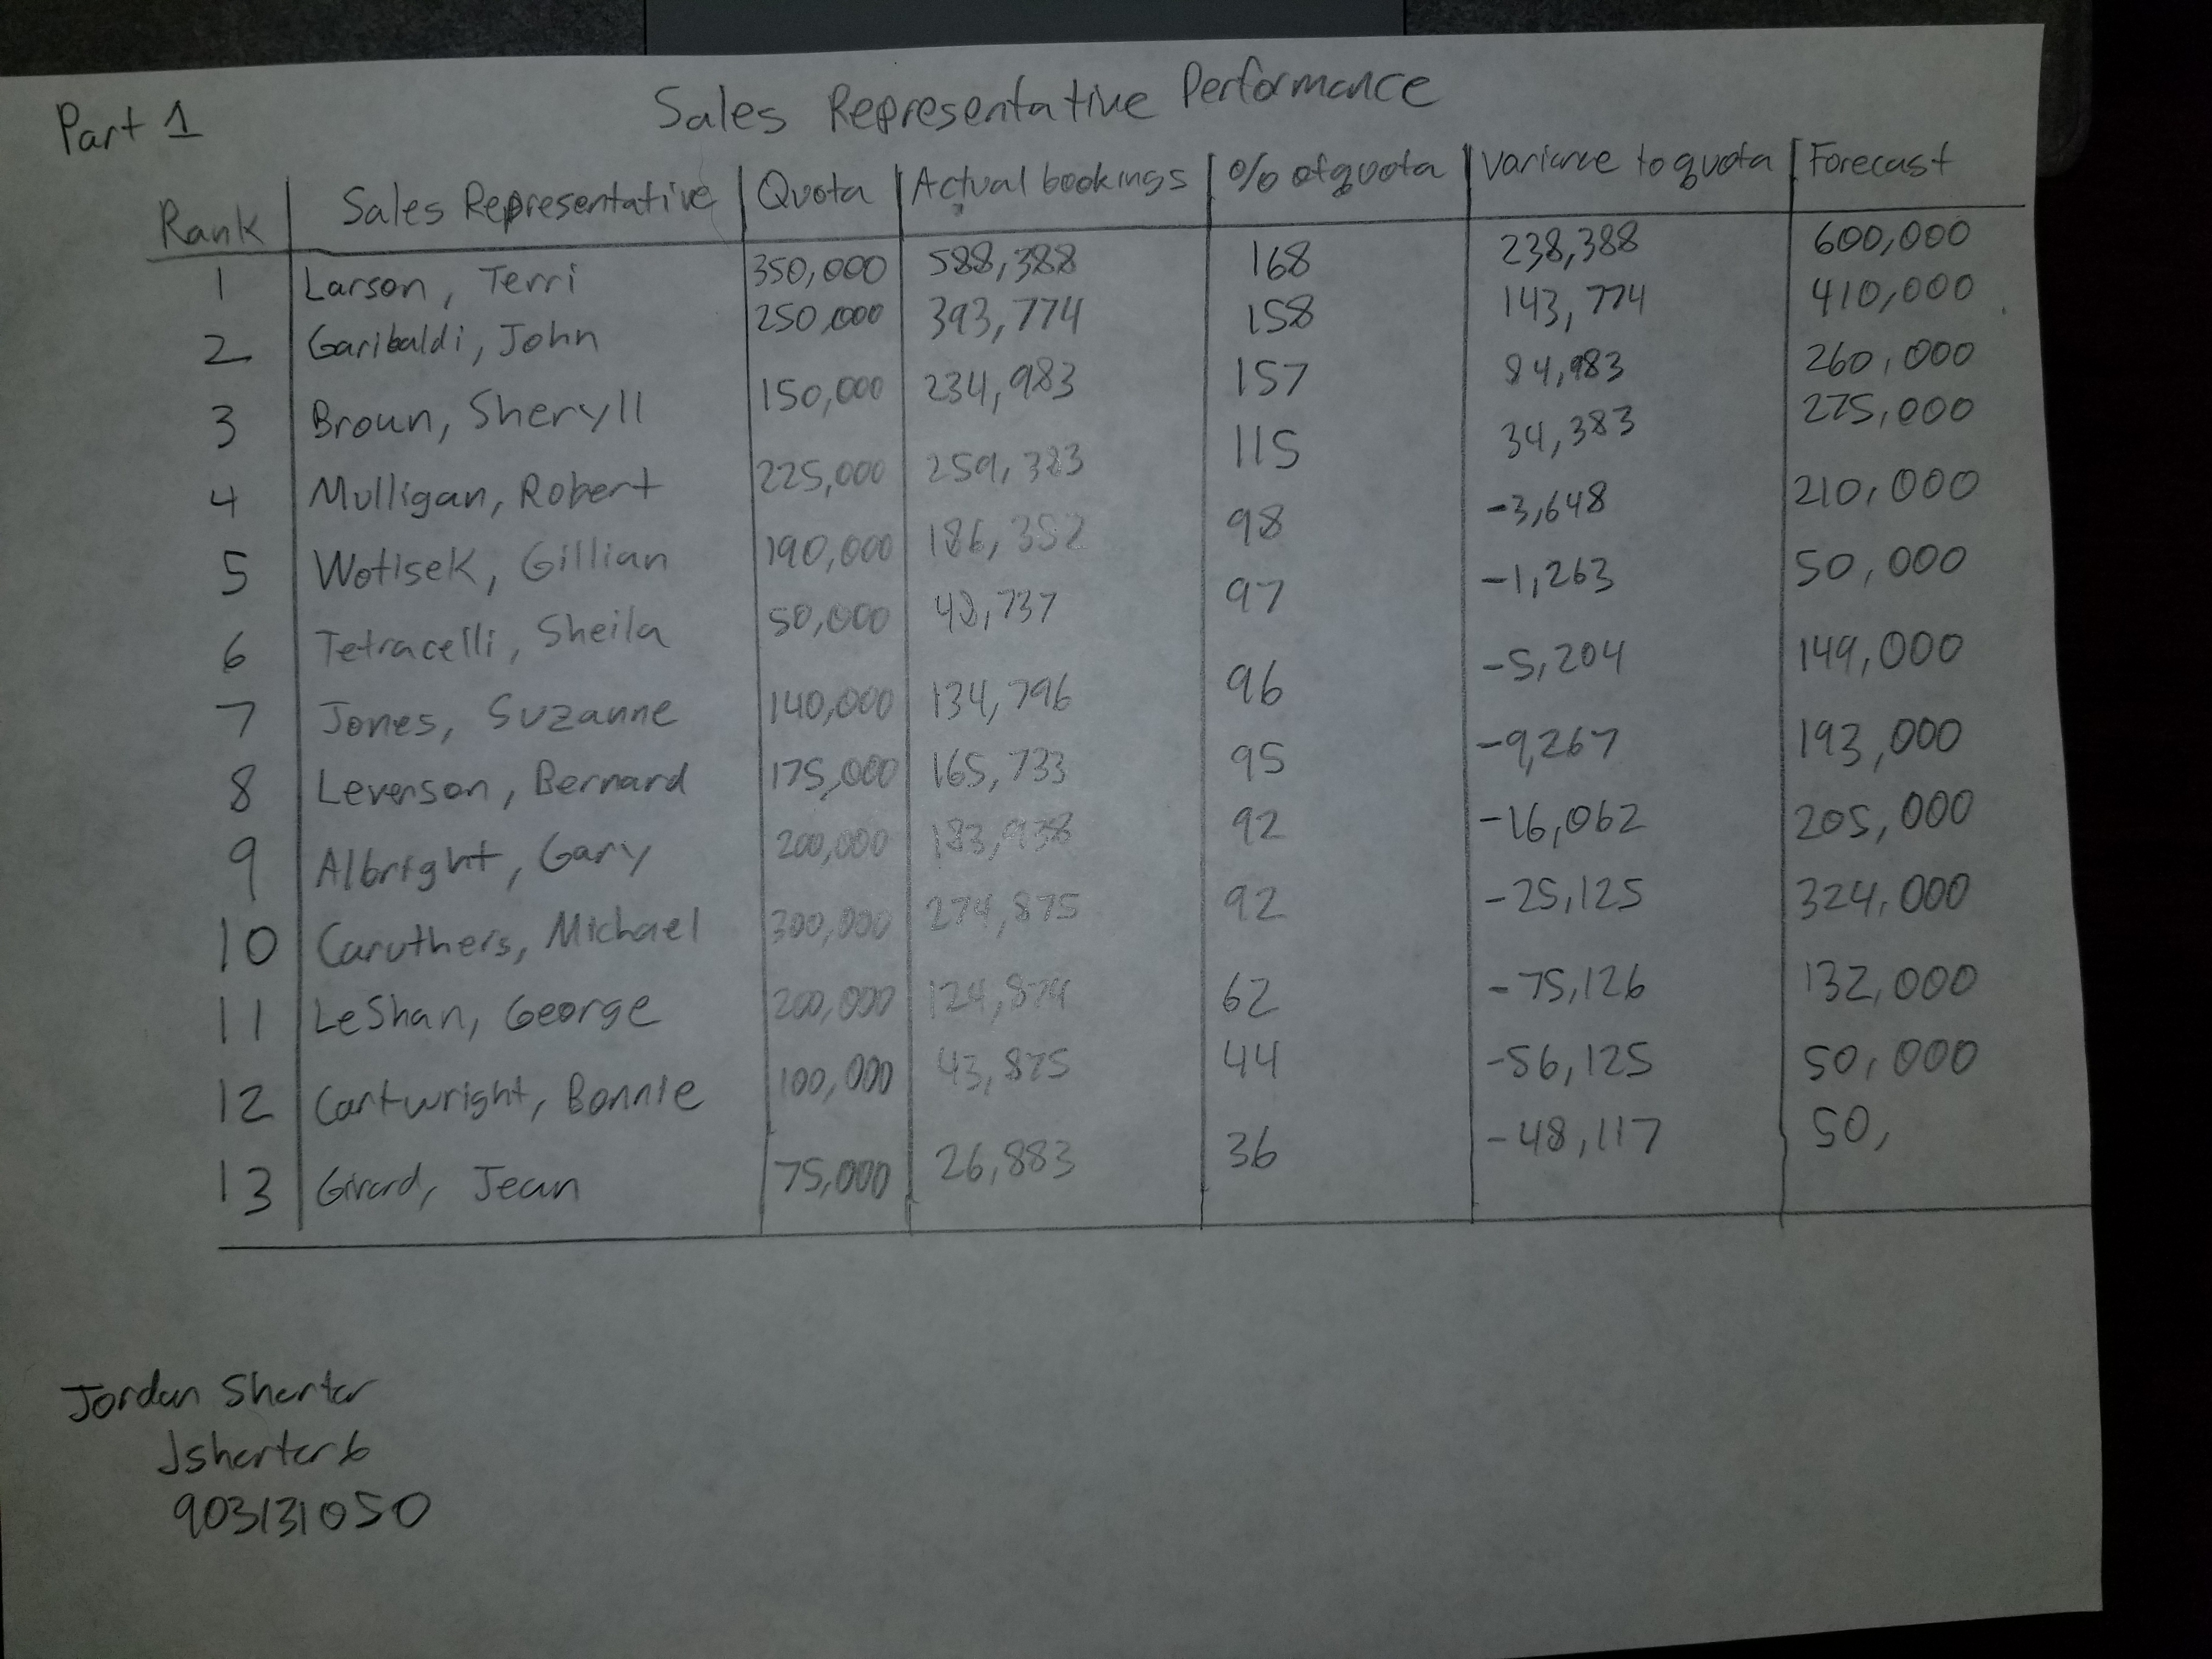 Part 1
Sales Representative Performance
Rank Sales Representative Quota Actual bookings % of quota Variance to quota Forecast
1 Larson, Terri 350,000 588,388 168 238,388 600,000
2 Garibaldi, John 250,000 393,774 158 143,774 410,000
3 Broun, Sheryll 150,000 234,983 157 84,983 260,000
4 Mulligan, Robert 225,000 259,383 115 34,383 275,000
5 Wotisek, Gillian 190,000 186,352 98 -3,648 210,000
6 Tetracelli, Sheila 50,000 48,737 97 -1,263 50,000
7 Jones, Suzanne 140,000 134,796 96 -5,204 149,000
8 Levenson, Bernard 175,000 165,733 95 -9,267 193,000
9 Albright, Gary 200,000 183,938 92 -16,062 205,000
10 Caruthers, Michael 300,000 274,875 92 -25,125 324,000
11 LeShan, George 200,000 124,874 62 -75,126 132,000
12 Cartwright, Bonnie 100,000 43,875 44 -56,125 50,000
13 Girard, Jean 75,000 26,883 36 -48,117 50,
Jordan Sherter
Jsherter6
903131050